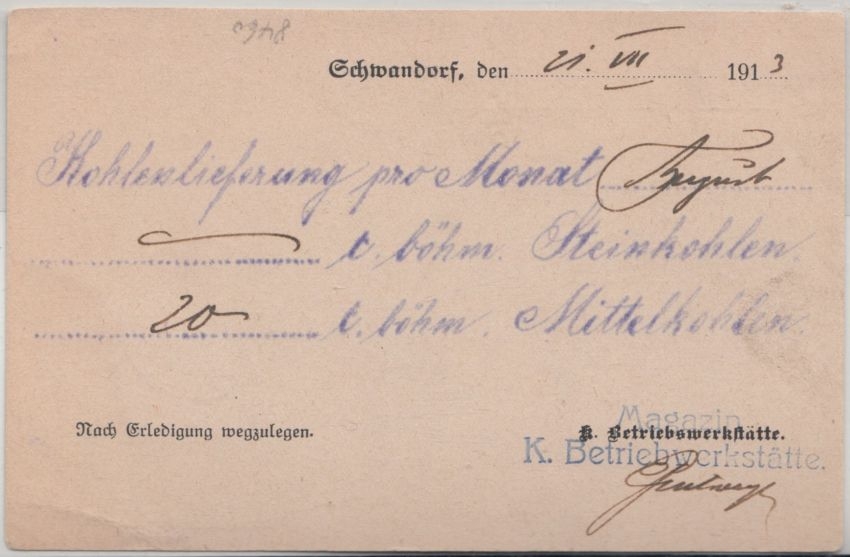 Schwandorf, den 21. VII 1913
Kohlenlieferung pro Monat August
— t. böhm. Steinkohlen.
20 t. böhm. Mittelkohlen.
Nach Erledigung wegzulegen.
Magazin
K. Betriebswerkstätte.
K. Betriebwerkstätte.